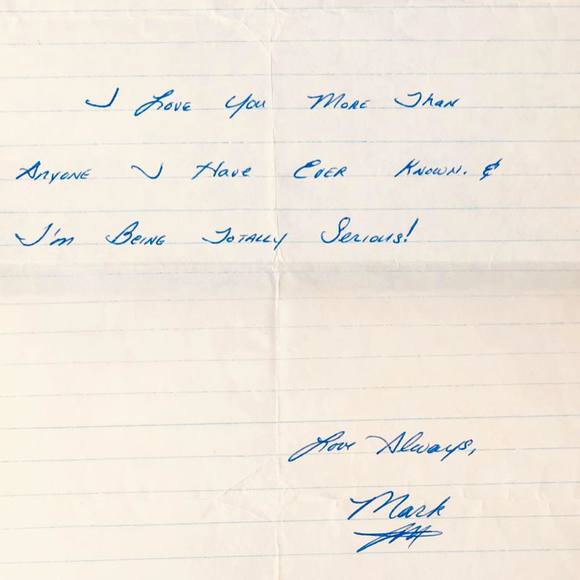 I Love You More Than
Anyone I Have Ever Known. &
I'm Being Totally Serious!
Love Always,
Mark